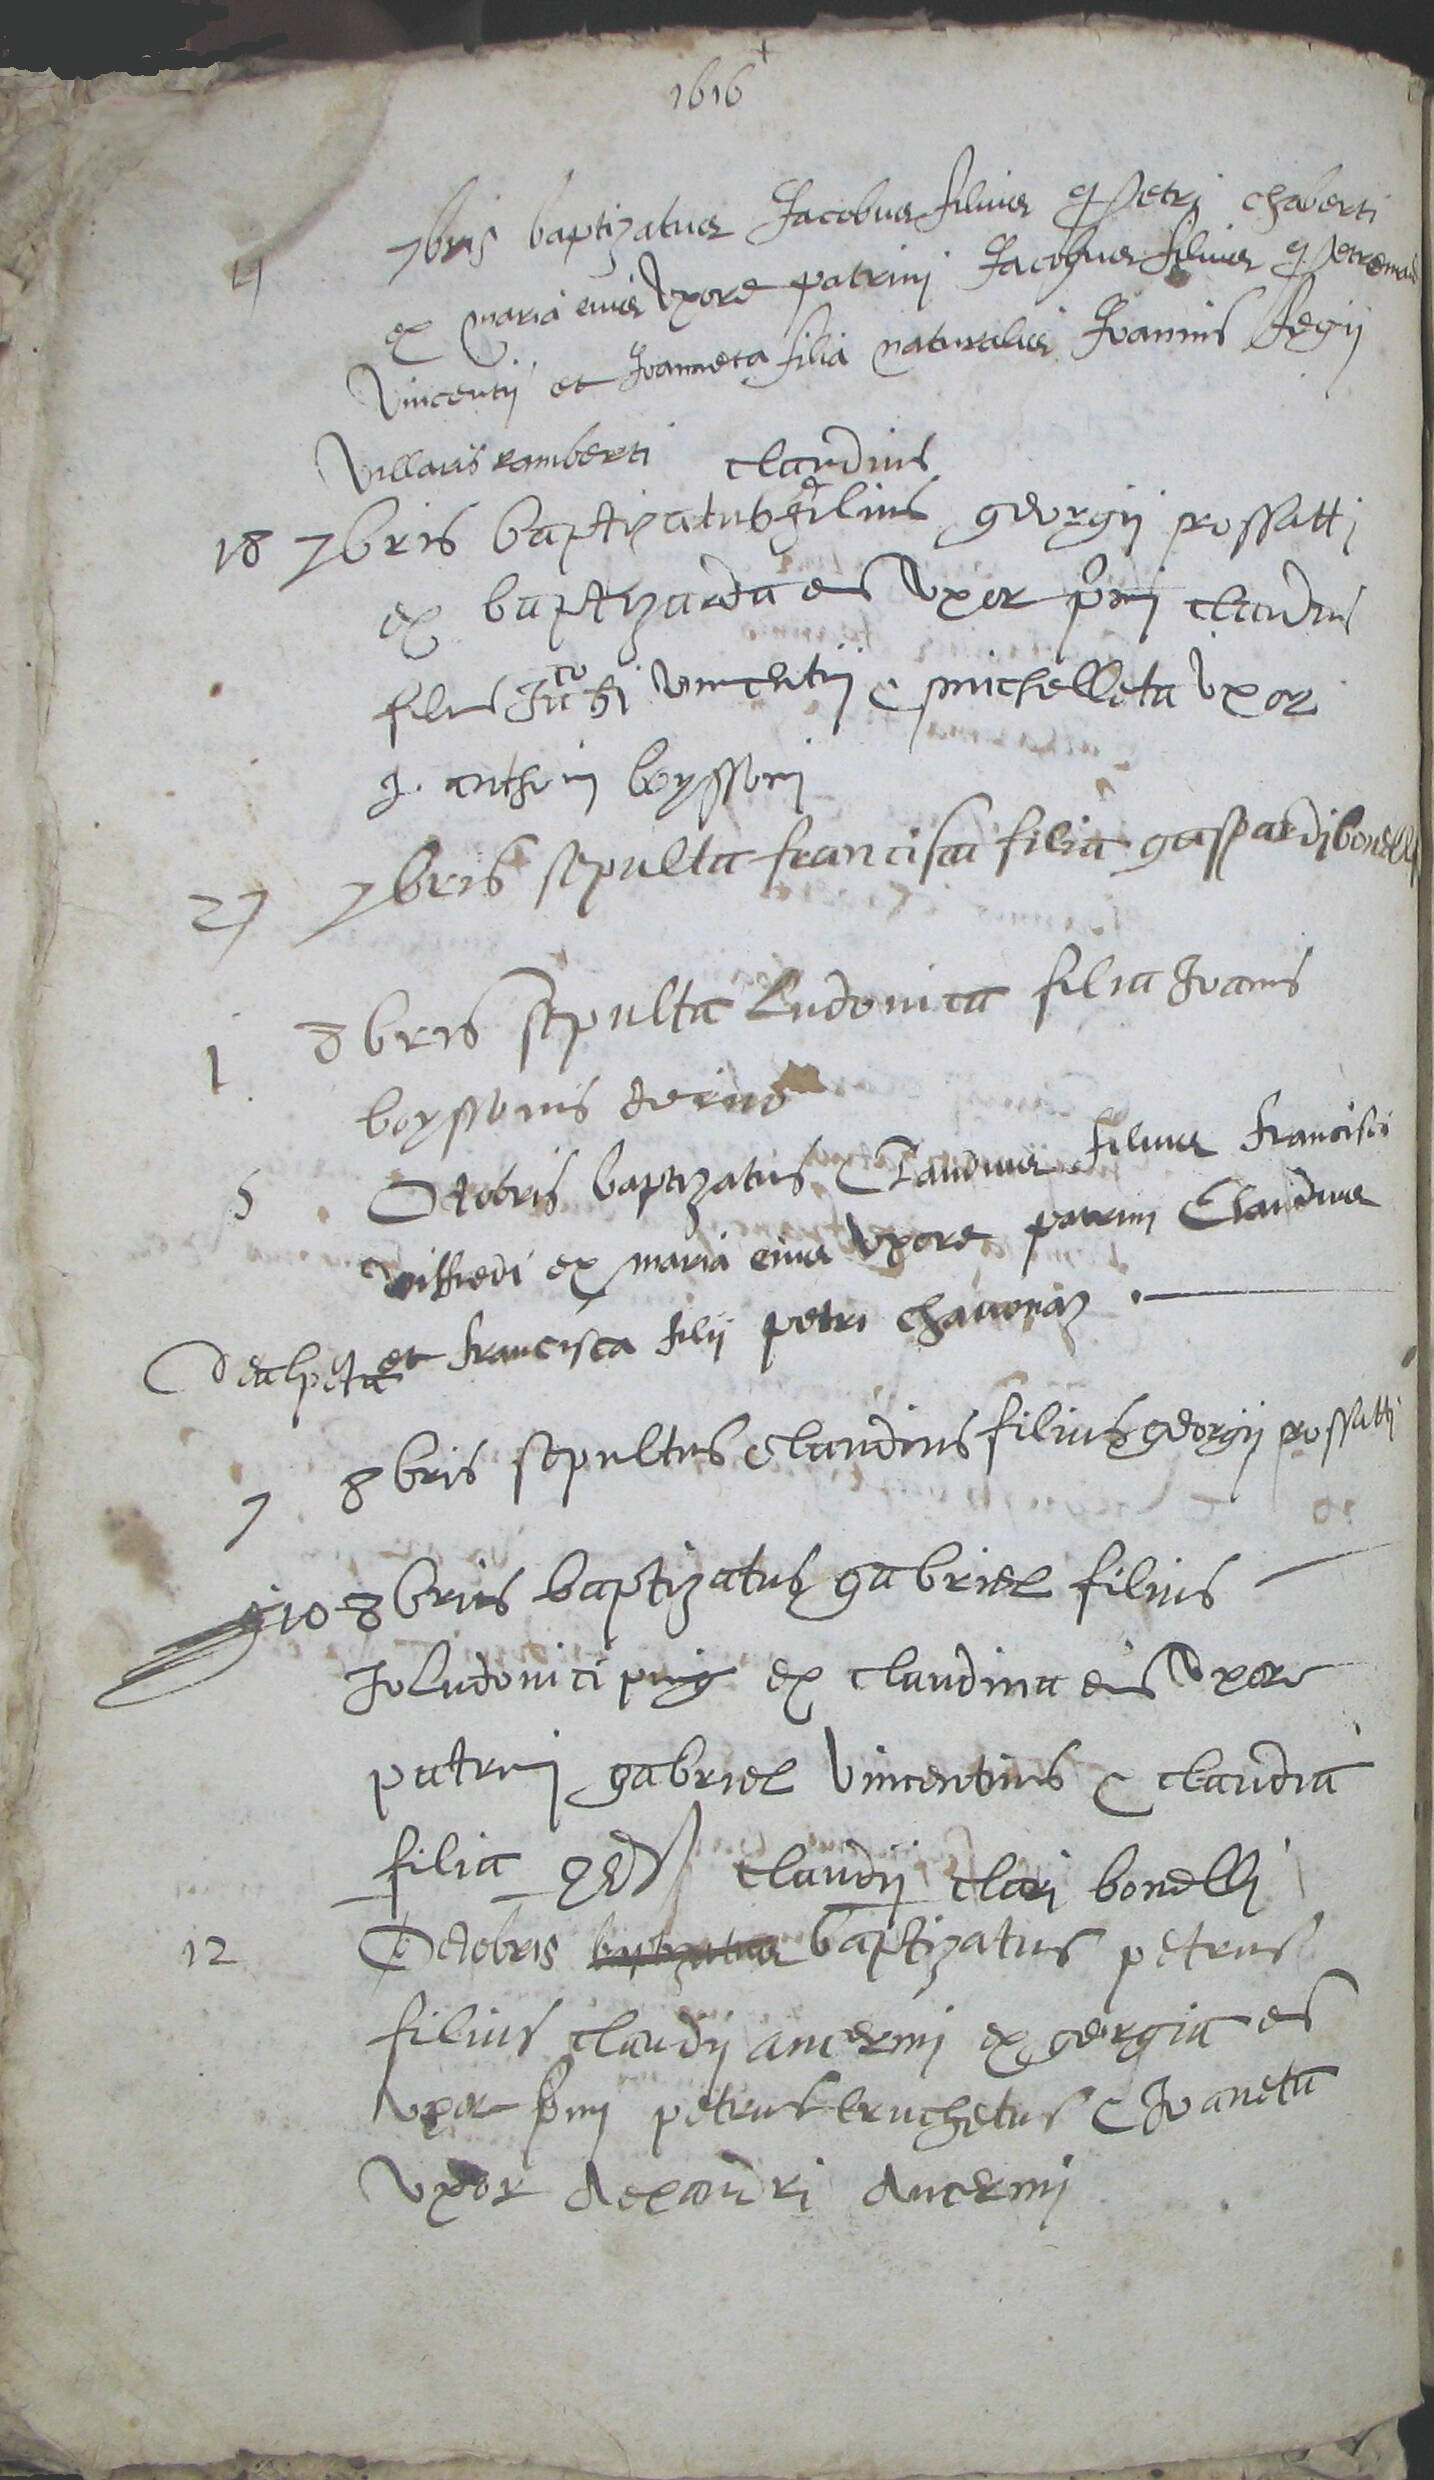 1616
4 7bris baptizatus Jacobus filius q petri chaberti
ex maria eius Uxore patrini Jacobus filius q petremandi
Vincentij et Joanneta filia naturalis Joannis Regij
Villaris ramberti claudius
18 7bris baptizatus filius georgij rossatti
ex baptizarda eius Uxor pni claudius
filius Jacobi vincentij & michelleta Uxor
J. anthonij boyssonij
27 7bris sepulta francisca filia gaspardi bonelli
1 8bris sepulta Ludovica filia Joanis
boyssonis
5 Octobris baptizatus Claudius filius Francisci
viffredi ex maria eius Uxore patrini Claudius
Dealpeta et Francisca filij petri chavonaz
7 8bris sepultus Claudius filius georgij rossatti
10 8bris baptizatus gabriel filius
Jo Ludovici puig ex claudina eius Uxore
patrini gabriel Vincentius & claudia
filia claudij clari bonelli
12 Octobris baptizatus baptizatus petrus
filius claudij ancermi ex georgia eius
Uxor pni petrus truchetus & Joaneta
Uxor Alexandri Ancermi